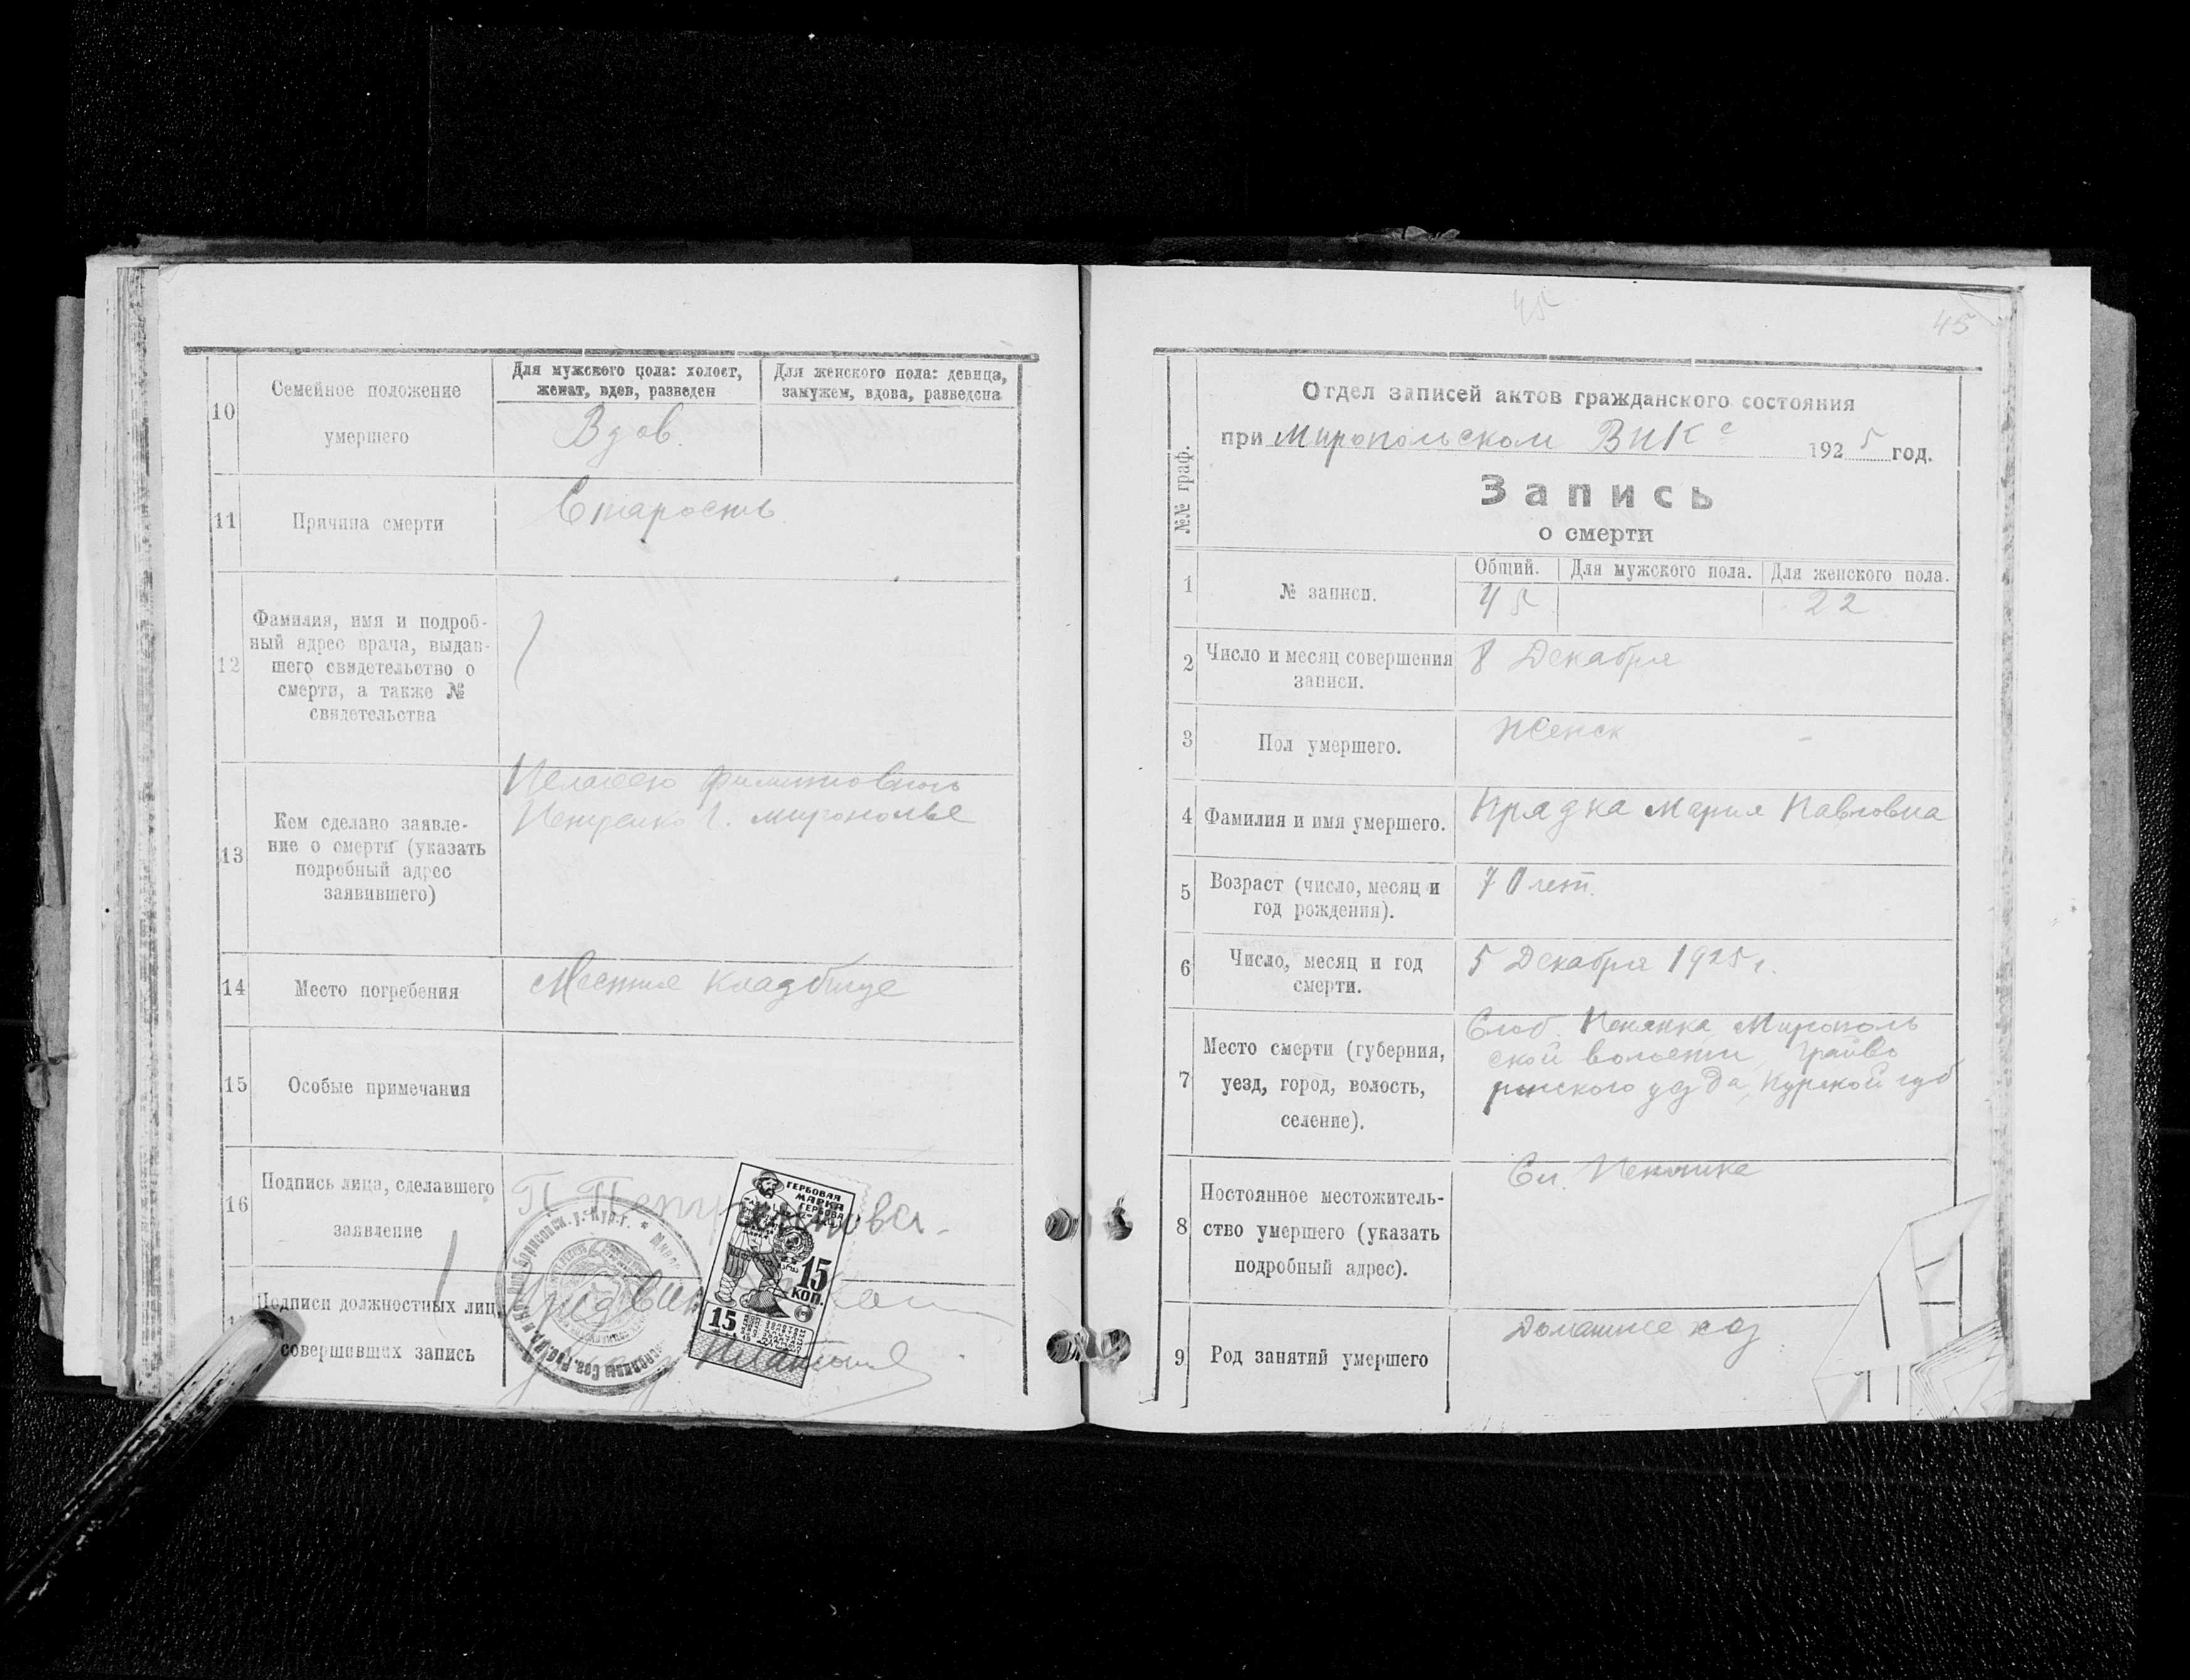 10
Семейное положение
умершего
Для мужского пола: холост,
женат, вдов, разведен
Для женского пола: девица,
замужем, вдова, разведена
Вдов.
11
Причина смерти
Старость
12
Фамилия, имя и подроб-
ный адрес врача, выдав-
шего свидетельство о
смерти, а также №
свидетельства
13
Кем сделано заявле-
ние о смерти (указать
подробный адрес
заявившего)
г. Мирополье
14
Место погребения
Местное кладбище
15
Особые примечания
16
Подпись лица, сделавшего
заявление
П
Подписи должностных лиц,
совершивших запись
ГЕРБОВАЯ
МАРКА
15
КОП.
15
45
45
Отдел записей актов гражданского состояния
при Миропольском ВИКе 1925 год.
№№ граф.
Запись
о смерти
1
№ записи.
Общий.
Для мужского пола.
Для женского пола.
45
22
2
Число и месяц совершения
записи.
8 Декабря
3
Пол умершего.
Женск
4
Фамилия и имя умершего.
Прядка Мария Павловна
5
Возраст (число, месяц и
год рождения).
70 лет.
6
Число, месяц и год
смерти.
5 Декабря 1925 г.
7
Место смерти (губерния,
уезд, город, волость,
селение).
Слоб. Пенянка, Мирополь
ской волости, Грайво
ронского уезда, Курской губ
8
Постоянное местожитель-
ство умершего (указать
подробный адрес).
Сл. Пенянка
9
Род занятий умершего
Домашнее хоз